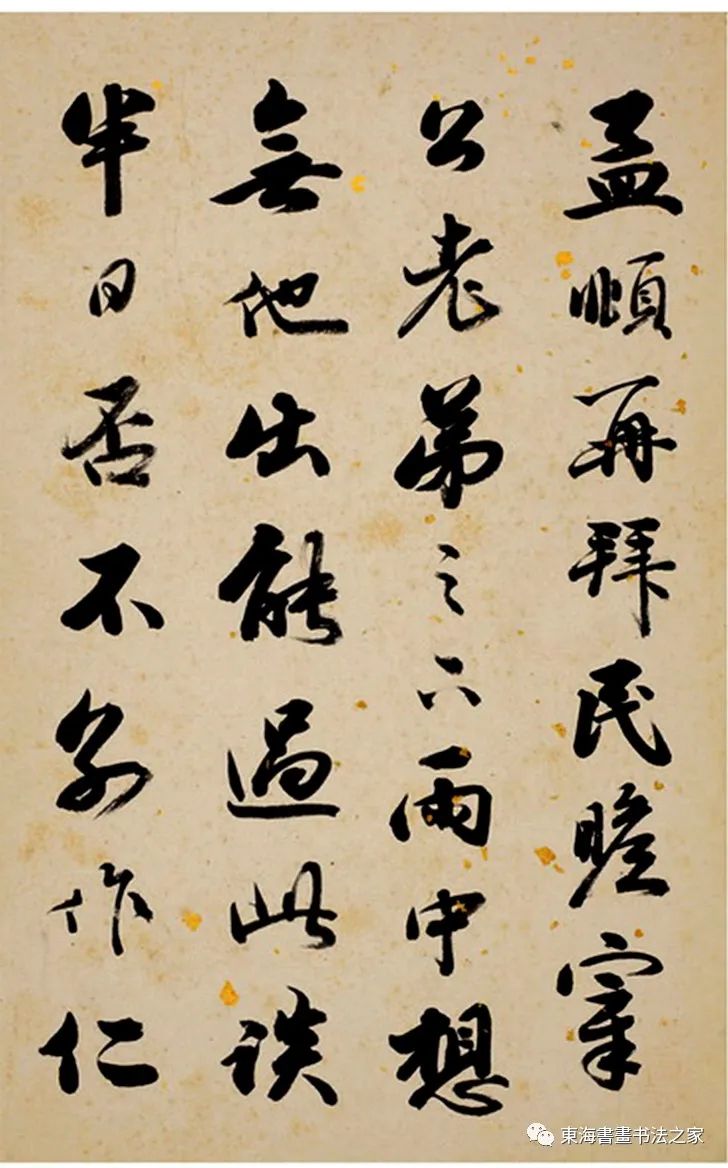 孟頫再拜民瞻宰
公老弟足下雨中想
無他出能過此談
半日否不別作仁
東海書畫书法之家